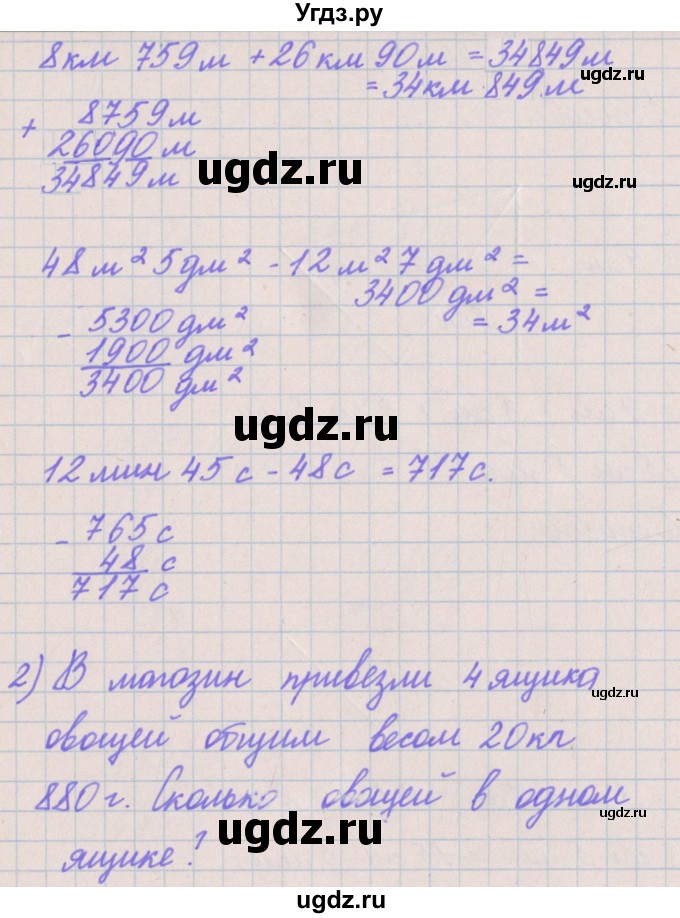 Угдз.ру
8км 759м + 26км 90м = 34849м
ugdz.ru
= 34км 849м
+ 8759м
26090м
34849м
ugdz.ru
ugdz.ru
48м² 5дм² - 12м² 7дм² =
3400дм² =
= 34м²
- 5300дм²
1900дм²
3400дм²
ugdz.ru
12мин 45с - 48с = 717с.
- 765с
48с
717с
ugdz.ru
2) В магазин привезли 4 ящика
ugdz.ru
овощей общим весом 20кг
880г. Сколько овощей в одном
ugdz.ru
ugdz.ru
ящике?
ugdz.ru